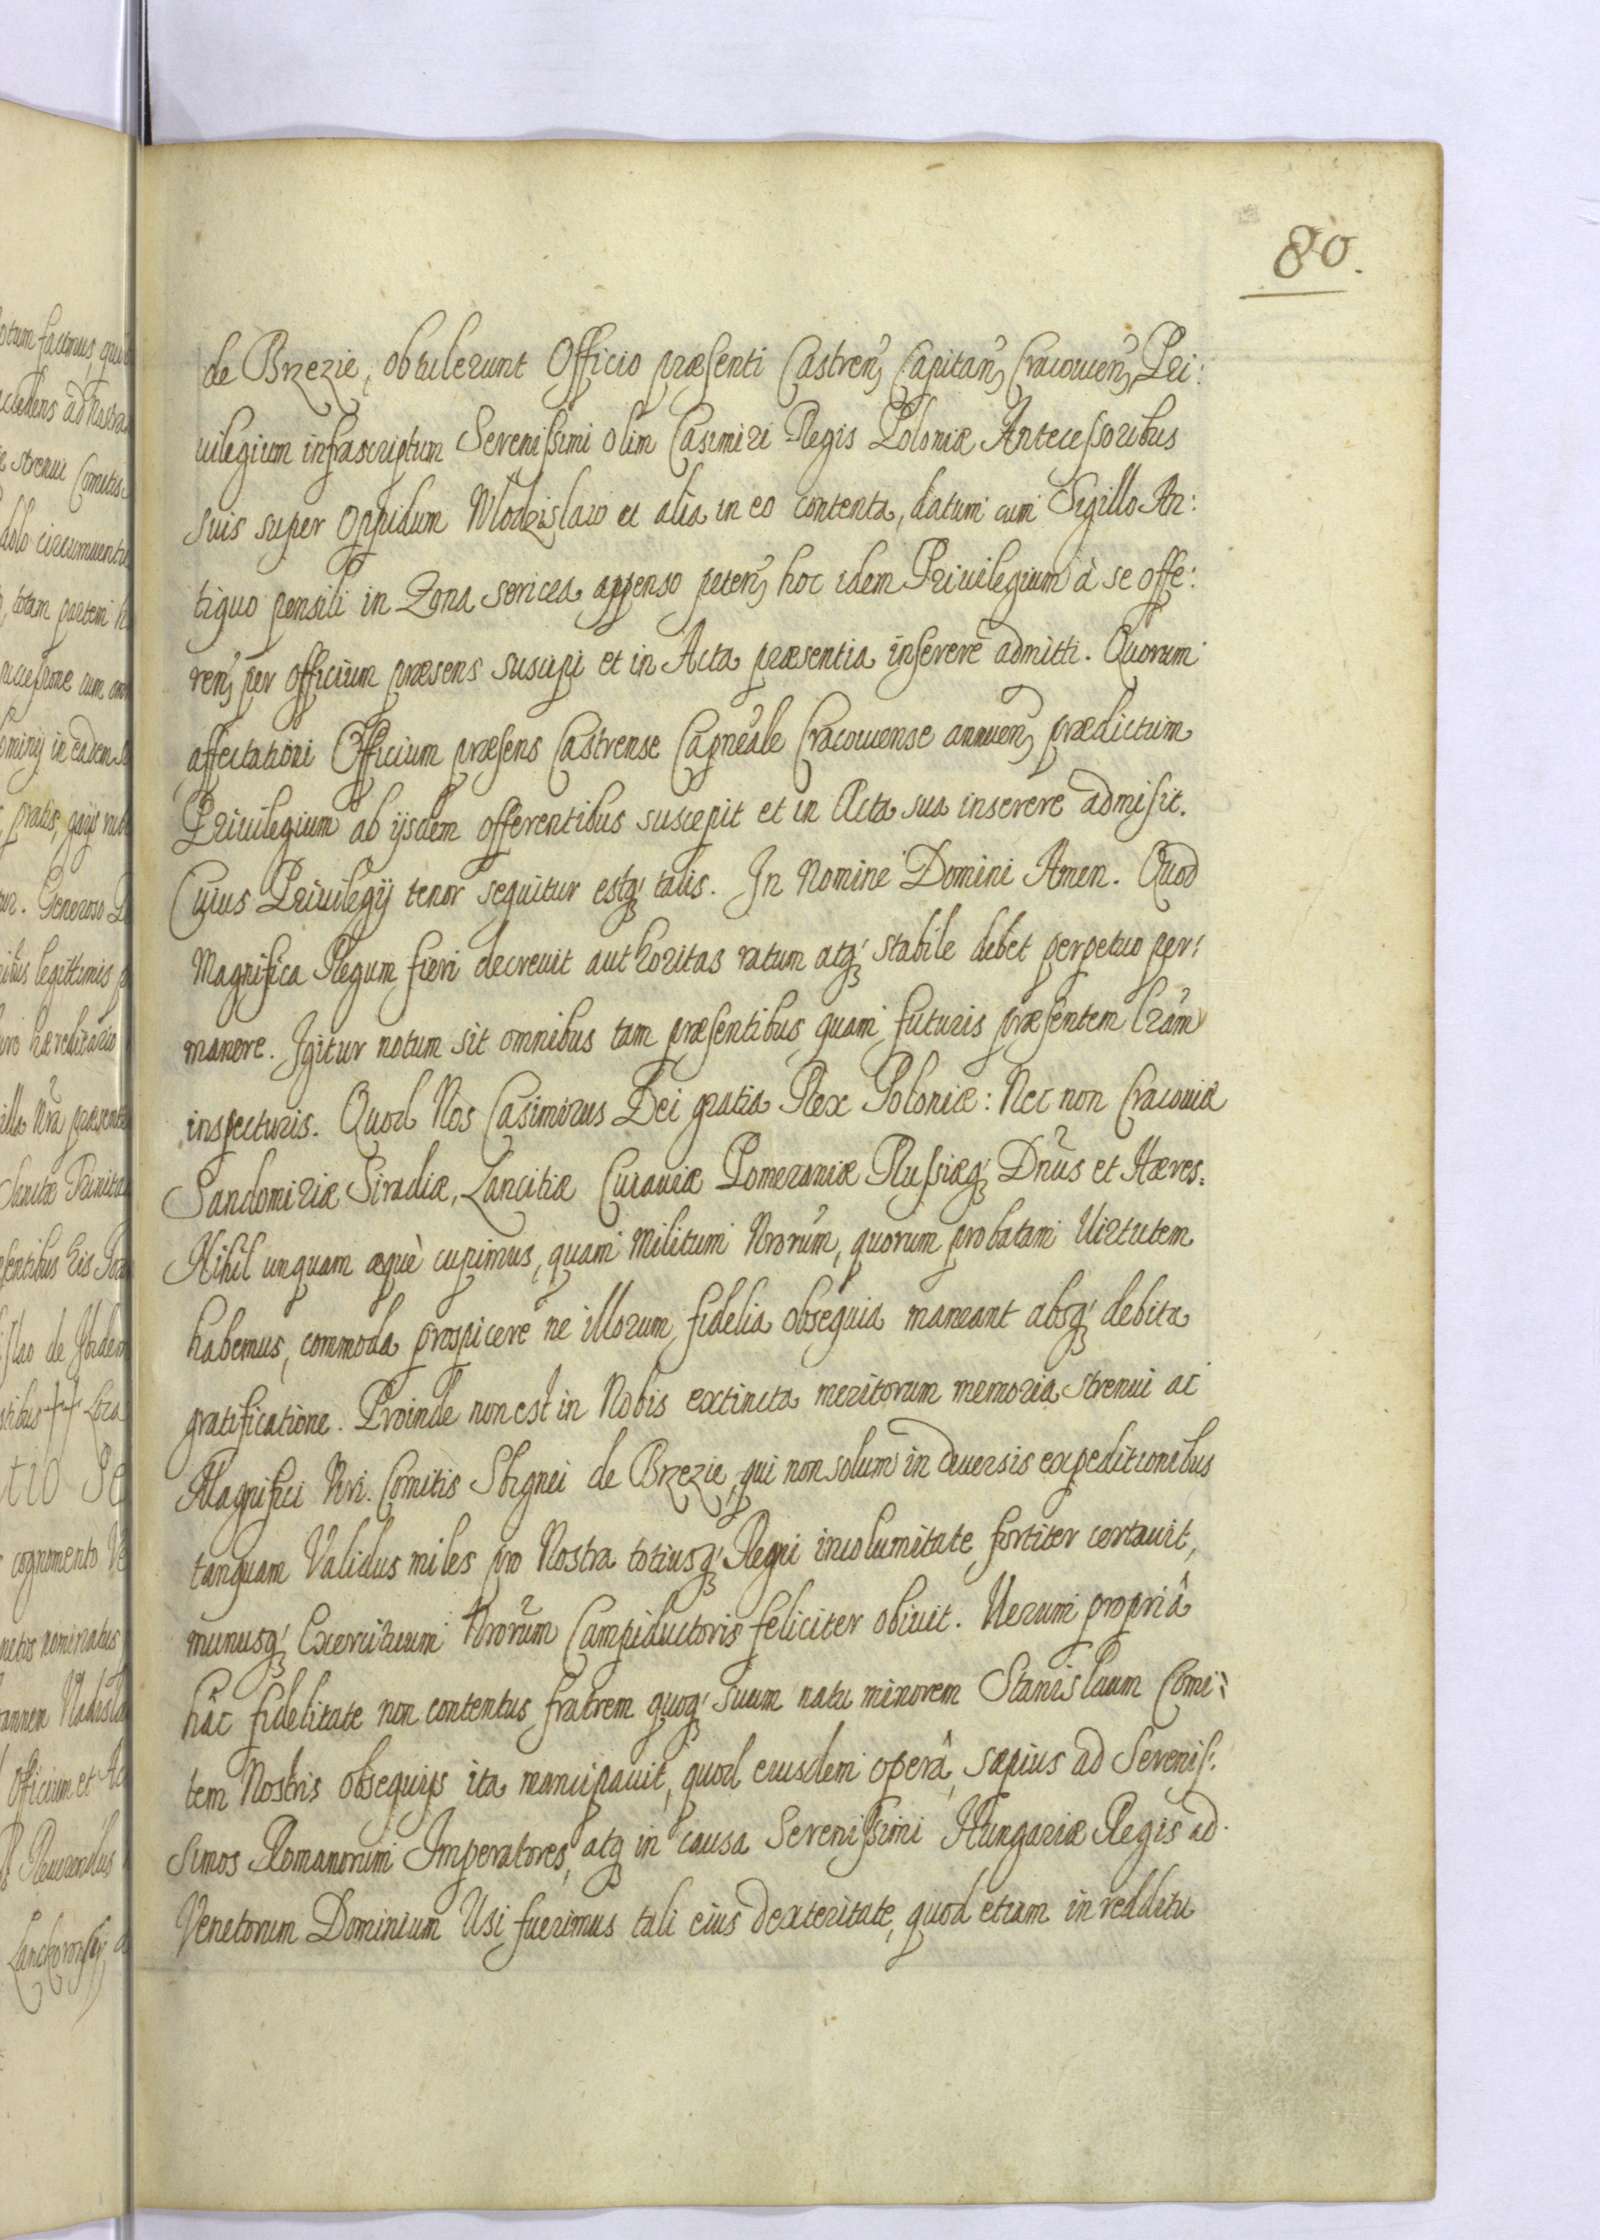 80.
de Brzezie, obtulerunt Officio præsenti Castren Capitan Cracouien, Pri:
uilegium infrascriptum Serenissimi olim Casimiri Regis Poloniæ Antecessoribus
suis super Oppidum Wlodzislaw et alia in eo contenta, datum cum Sigillo An:
tiquo pensili in Zona sericea appenso peten hoc idem Priuilegium à se offe:
ren per officium præsens suscipi et in Acta præsentia inserere admitti. Quorum
affectationi Officium præsens Castrense Capneale Cracouiense annuen prædictum
Priuilegium ab ijsdem offerentibus suscepit et in Acta sua inserere admisit.
Cuius Priuilegij tenor sequitur estq; talis. In Nomine Domini Amen. Quod
Magnifica Regum fieri decreuit authoritas ratum atq; stabile debet perpetuo per:
manere. Igitur notum sit omnibus tam præsentibus quam futuris præsentem lrãm
inspecturis. Quod Nos Casimirus Dei gratia Rex Poloniæ: Nec non Cracouiæ
Sandomiriæ Siradiæ, Lancitiæ Cuiauiæ Pomeraniæ Russiæq; Dnus et Hæres.
Nihil unquam æquè cupimus, quam Militum Nrorum, quorum probatam Uirtutem
habemus, commoda prospicere ne illorum fidelia obsequia maneant absq; debita
gratificatione. Proinde non est in Nobis extincta meritorum memoria Strenui ac
Magnifici Nri. Comitis Sbignei de Brzezie, qui non solum in diuersis expeditionibus
tanquam Validus miles pro Nostra totiusq; Regni incolumitate fortiter certauit,
munusq; Exercituum Nrorum Campiductoris feliciter obiuit. Uerum propriâ
hâc fidelitate non contentus fratrem quoq; suum natu minorem Stanislaum Comi:
tem Nostris obsequijs ita mancipauit, quod eiusdem operâ, sæpius ad Serenis:
simos Romanorum Imperatores, atq; in causa Serenissimi Hungariæ Regis ad
Venetorum Dominium Usi fuerimus tali eius dexteritate, quod etiam in redditu